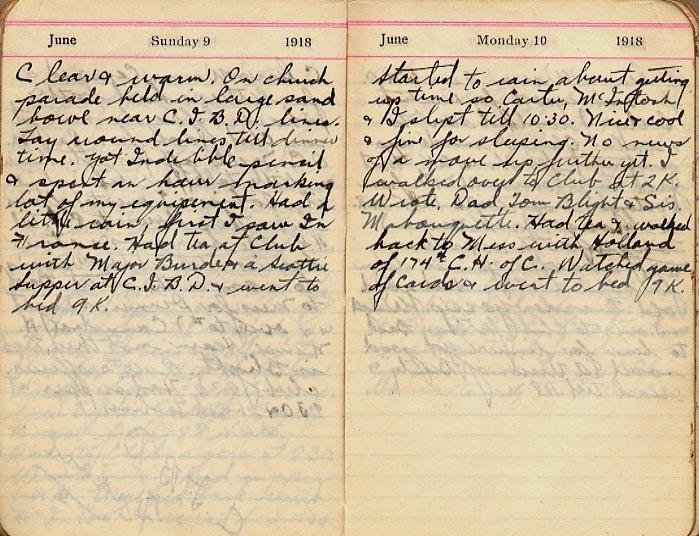 June Sunday 9 1918
Clear & warm. On church
parade held in large sand
bowl near C.I.B.D. lines.
Lay round lines till dinner
time. Got Indelible pencil
& spent an hour marking
lot of my equipment. Had a
little rain, first I saw In
France. Had tea at Club
with Major Burde & a Scottie
Supper at C.I.B.D. & went to
bed 9 K.
June Monday 10 1918
Started to rain about getting
up time so Carter, McIntosh
& I slept till 10:30. Nice & cool
& fine for sleeping. No news
of a move up further yet. I
walked over to Club at 2 K.
Wrote, Dad, Tom Blight & Sis.
Had tea & walked
back to Mess with Holland
of 174th C.H. of C. Watched game
of Cards & went to bed 9 K.